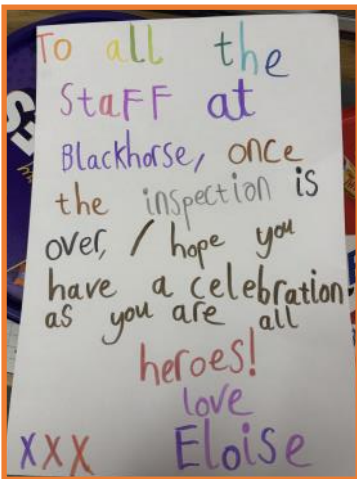 To all the
Staff at
Blackhorse, once
the inspection is
over, I hope you
have a celebration
as you are all
heroes!
love
xxx Eloise